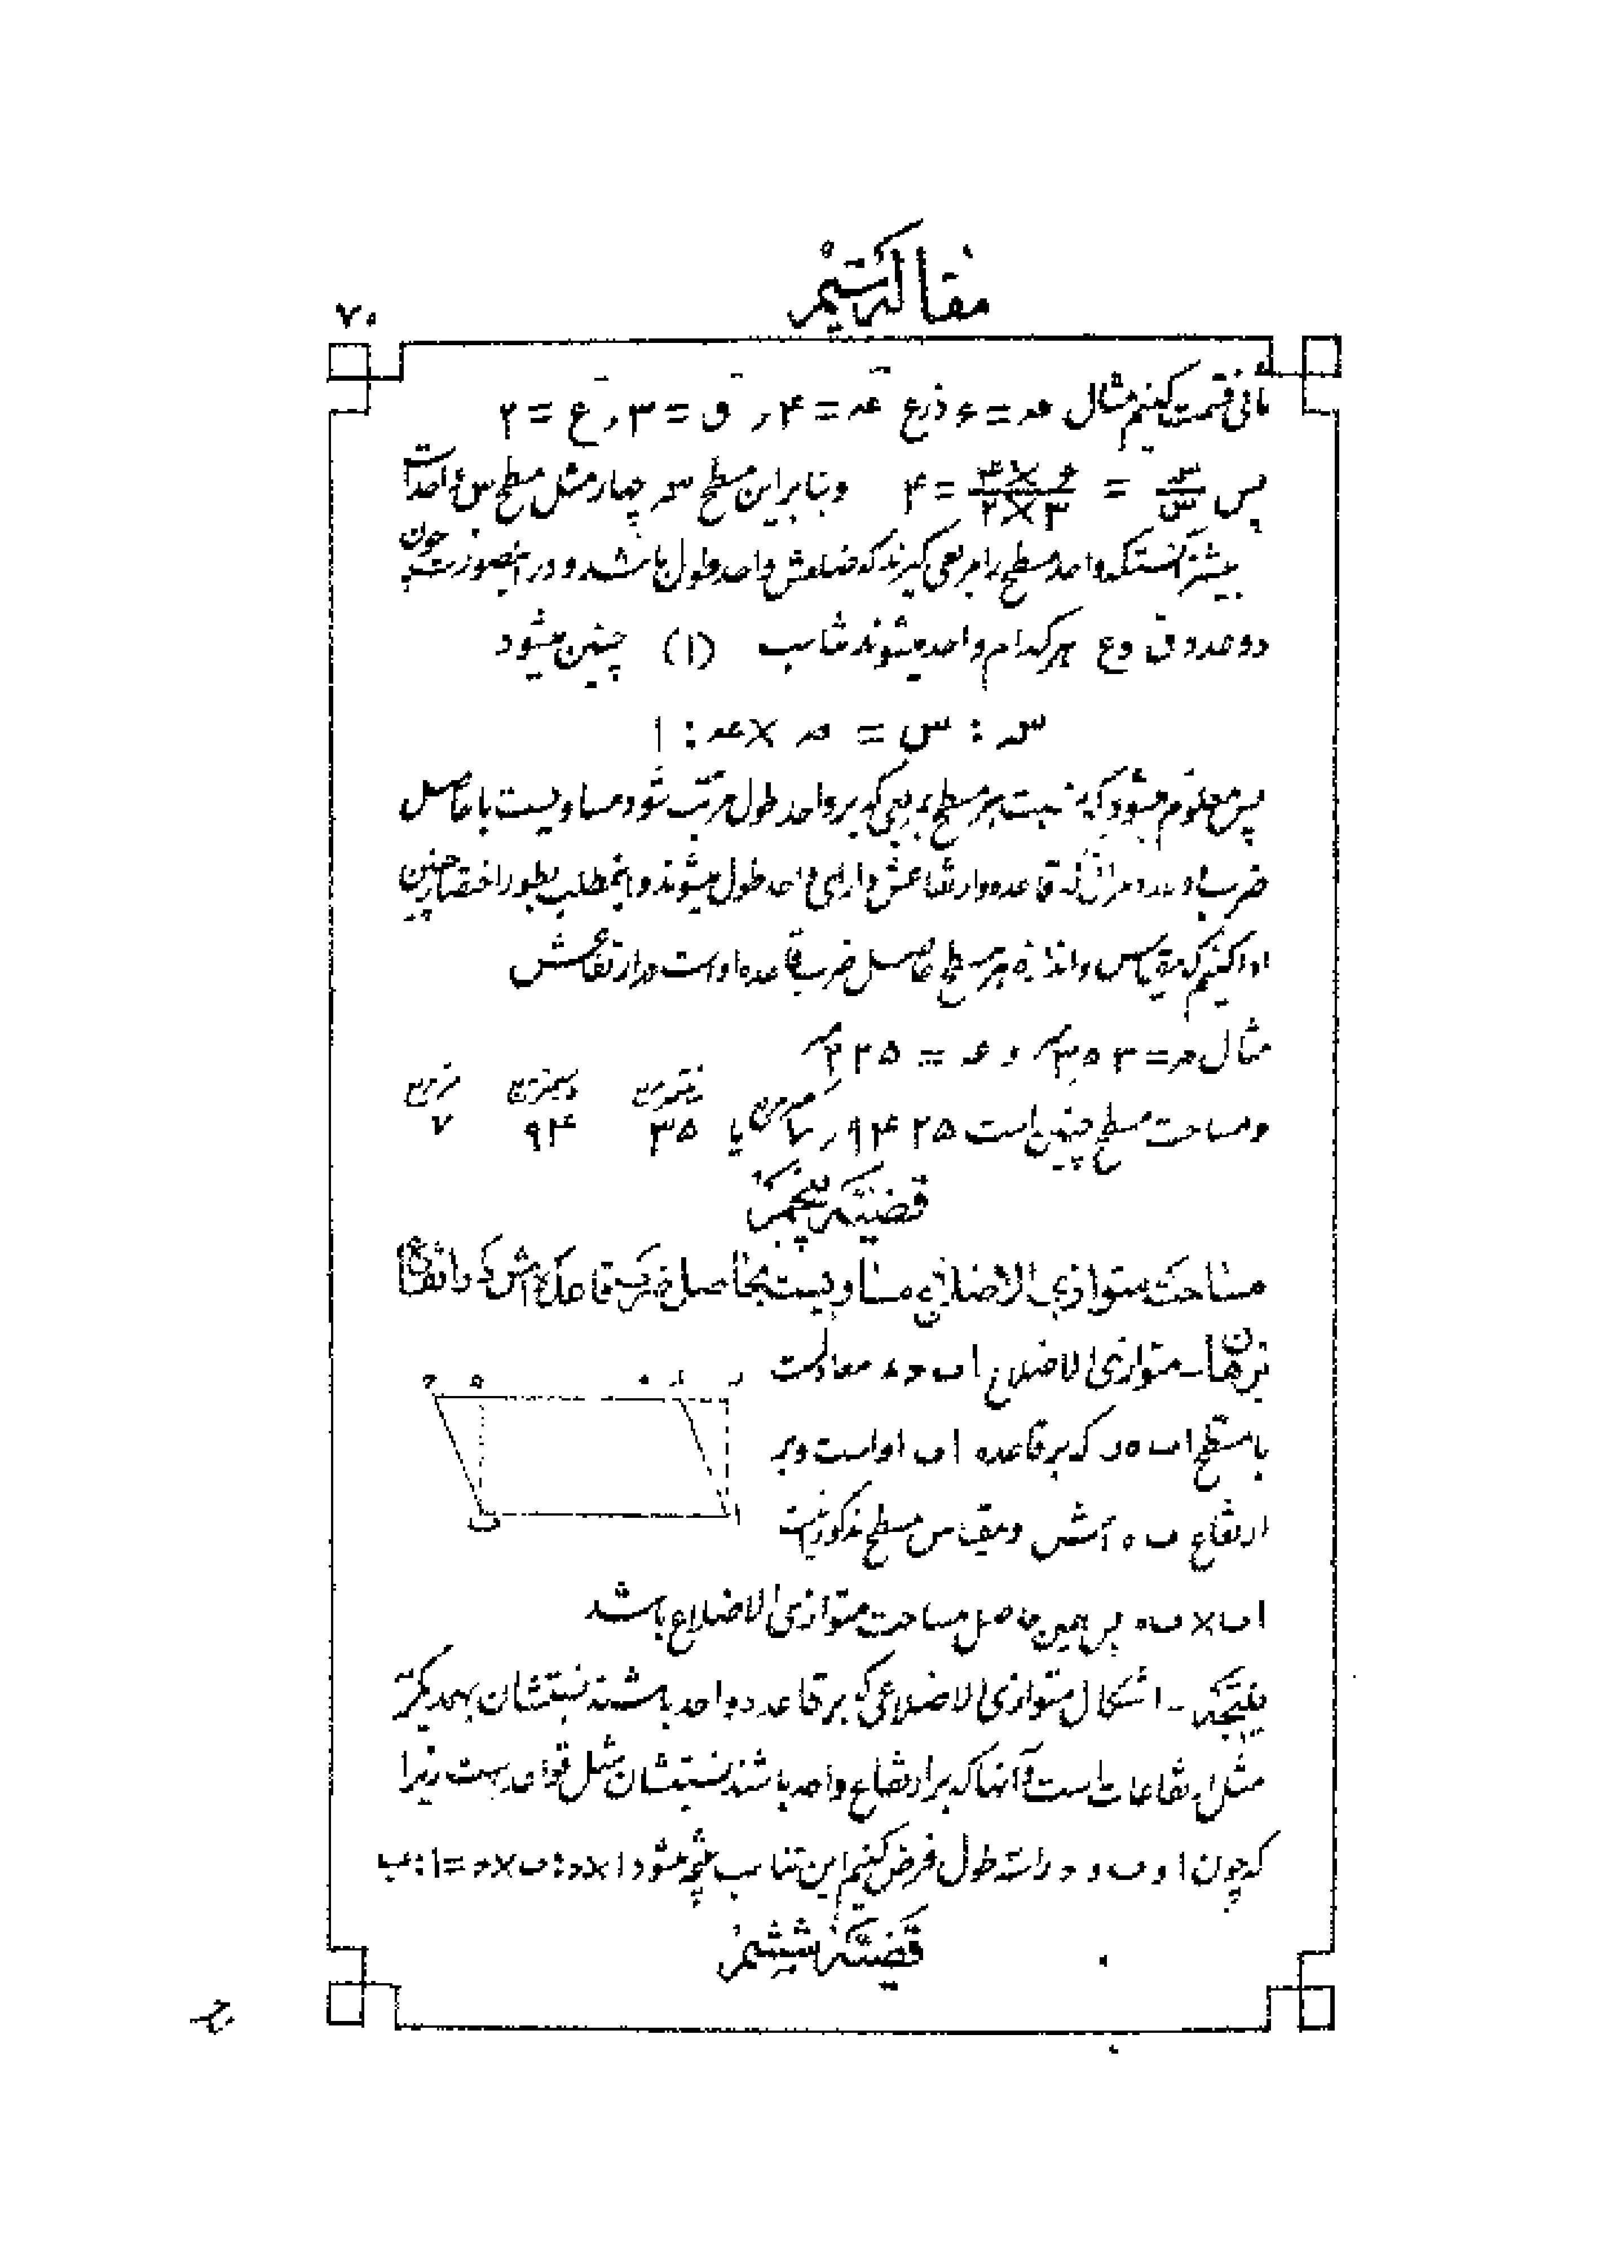 مقالهٔ سیم
۷۰
ثانی قسمت کنیم مثال قه = ۶ ذرع عه = ۴ ر ق = ۳ ر ع = ۲
پس سه/س = ۴×۶/۲×۳ = ۴ و بنابراین مسطح سه چهار مثل مسطح س است
بیشتر آنستکه واحد مسطح را مربعی گیرند که ضلعش واحد طول باشد و در اینصورت چون
دو عدد ق و ع هر کدام واحد میشوند تناسب (۱) چنین میشود
سه : س = قه × عه : ۱
پس معلوم میشود که نسبت هر مسطح بمربعی که بر واحد طول مرتب شود مساویست با حاصل
ضرب دو عدد مراتی که قاعده و ارتفاعش دارای واحد طول میشوند و اینمطلب بطور اختصار چنین
ادا کنیم که مقیاس و اندازه هر مسطح حاصل ضرب قاعده او است در ارتفاعش
مثال قه = ۳۵۳ و عه = ۲۲۵
و مساحت مسطح چنین است ۹۴۲۵ ر مربع یا ۳۵ ۹۴ ۷
قضیّهٔ پنجم
مساحت متوازی الاضلاع مساویست بحاصل ضرب قاعده‌اش در ارتفاع
برهان ـ متوازی الاضلاع ا ب ح ء معادلست
با مسطح ا ب ه ر که بر قاعده ا ب او است و بر
ارتفاع ب ه اش و مقیاس مسطح مذکور است
ا ب × ب ه پس همین حاصل مساحت متوازی الاضلاع باشد
نتیجه ـ اشکال متوازی الاضلاعی که بر قاعده واحد باشند نسبتشان بهمدیگر
مثل ارتفاعات است و آنها که بر ارتفاع واحد باشند نسبتشان مثل قواعد است زیرا
که چون ا و ب و ح را سه طول فرض کنیم این تناسب نتیجه میشود ا × ح : ب × ح = ا : ب
قضیّهٔ ششم